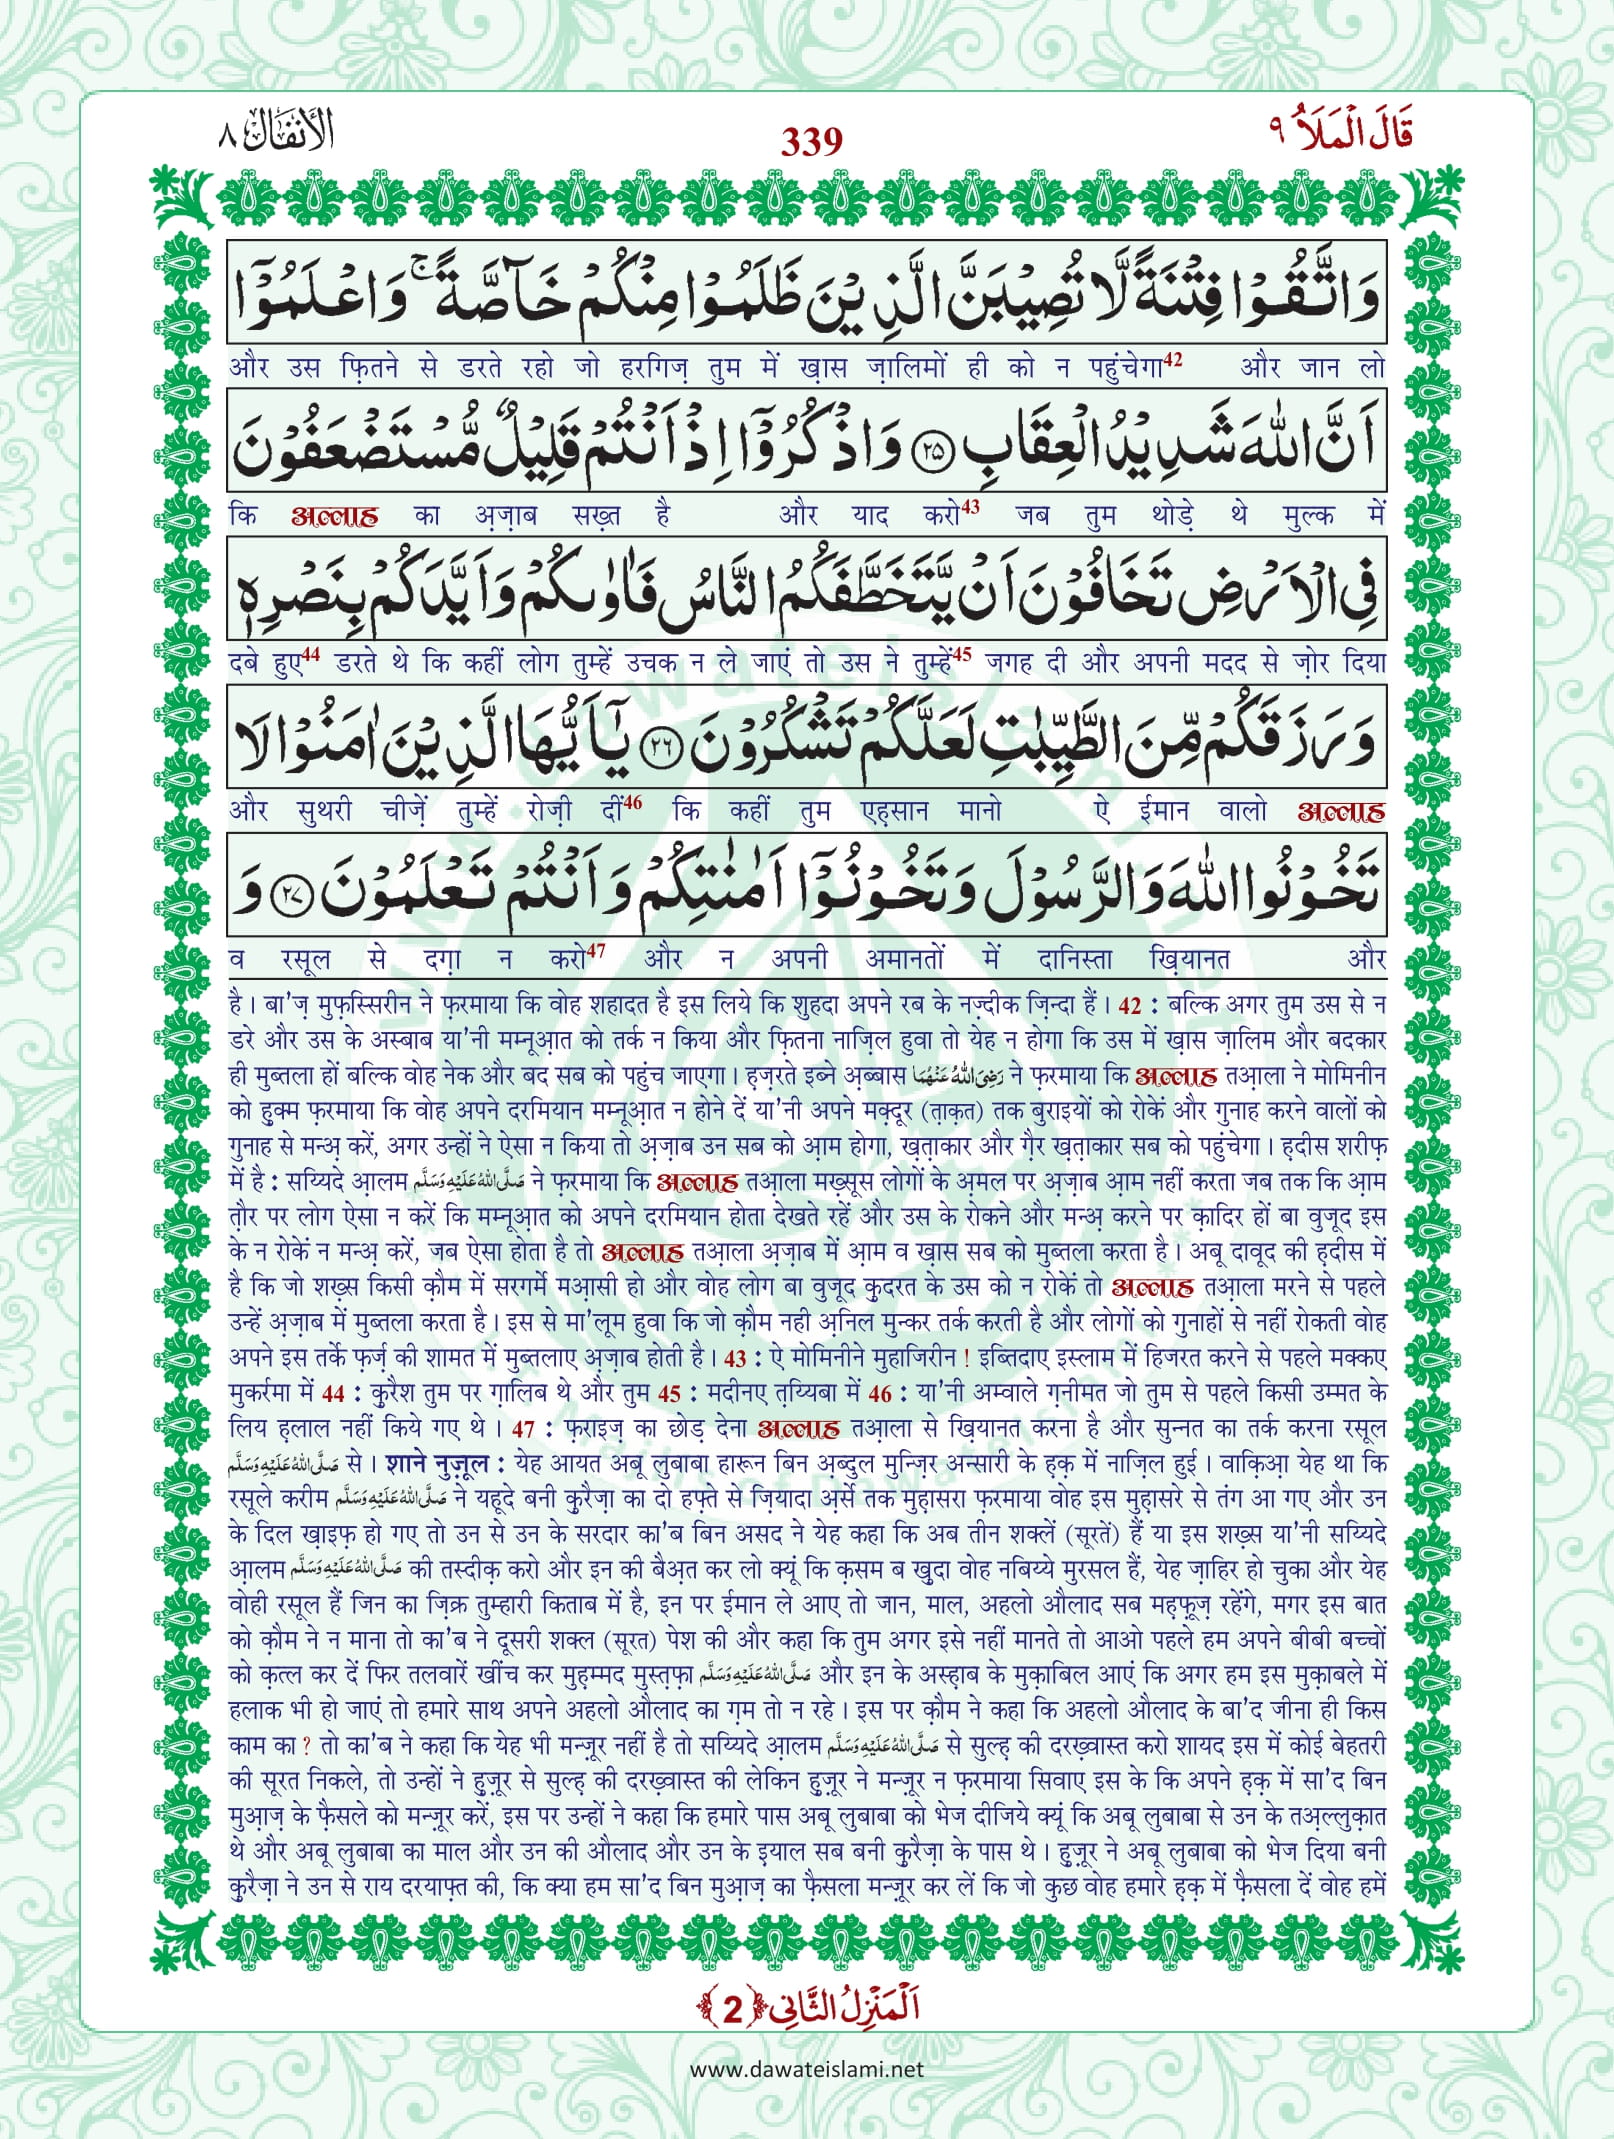 قَالَ الْمَلَاُ ۹
339
الأنفال ۸
وَاتَّقُوْا فِتْنَةً لَّا تُصِيْبَنَّ الَّذِيْنَ ظَلَمُوْا مِنْكُمْ خَآصَّةً ۚ وَاعْلَمُوْٓا
और उस फ़ितने से डरते रहो जो हरगिज़ तुम में ख़ास ज़ालिमों ही को न पहुंचेगा42 और जान लो
اَنَّ اللّٰهَ شَدِيْدُ الْعِقَابِ ﴿۲۵﴾ وَاذْكُرُوْٓا اِذْ اَنْتُمْ قَلِيْلٌ مُّسْتَضْعَفُوْنَ
कि अल्लाह का अ़ज़ाब सख़्त है और याद करो43 जब तुम थोड़े थे मुल्क में
فِي الْاَرْضِ تَخَافُوْنَ اَنْ يَّتَخَطَّفَكُمُ النَّاسُ فَاٰوٰىكُمْ وَاَيَّدَكُمْ بِنَصْرِهٖ
दबे हुए44 डरते थे कि कहीं लोग तुम्हें उचक न ले जाएं तो उस ने तुम्हें45 जगह दी और अपनी मदद से ज़ोर दिया
وَرَزَقَكُمْ مِّنَ الطَّيِّبٰتِ لَعَلَّكُمْ تَشْكُرُوْنَ ﴿۲۶﴾ يٰٓاَيُّهَا الَّذِيْنَ اٰمَنُوْا لَا
और सुथरी चीज़ें तुम्हें रोज़ी दीं46 कि कहीं तुम एह़सान मानो ऐ ईमान वालो अल्लाह
تَخُوْنُوا اللّٰهَ وَالرَّسُوْلَ وَتَخُوْنُوْٓا اَمٰنٰتِكُمْ وَاَنْتُمْ تَعْلَمُوْنَ ﴿۲۷﴾ وَ
व रसूल से दग़ा न करो47 और न अपनी अमानतों में दानिस्ता ख़ियानत और
है। बा'ज़ मुफ़स्सिरीन ने फ़रमाया कि वोह शहादत है इस लिये कि शुहदा अपने रब के नज़्दीक ज़िन्दा हैं। 42 : बल्कि अगर तुम उस से न
डरे और उस के अस्बाब या'नी मम्नूआ़त को तर्क न किया और फ़ितना नाज़िल हुवा तो येह न होगा कि उस में ख़ास ज़ालिम और बदकार
ही मुब्तला हों बल्कि वोह नेक और बद सब को पहुंच जाएगा। ह़ज़रते इब्ने अ़ब्बास رَضِىَ اللّٰهُ عَنْهُمَا ने फ़रमाया कि अल्लाह तआ़ला ने मोमिनीन
को हुक्म फ़रमाया कि वोह अपने दरमियान मम्नूआ़त न होने दें या'नी अपने मक़्दूर (त़ाक़त) तक बुराइयों को रोकें और गुनाह करने वालों को
गुनाह से मन्अ़ करें, अगर उन्हों ने ऐसा न किया तो अ़ज़ाब उन सब को आ़म होगा, ख़त़ाकार और ग़ैर ख़त़ाकार सब को पहुंचेगा। ह़दीस शरीफ़
में है : सय्यिदे आ़लम صَلَّى اللّٰهُ عَلَيْهِ وَسَلَّم ने फ़रमाया कि अल्लाह तआ़ला मख़्सूस लोगों के अ़मल पर अ़ज़ाब आम नहीं करता जब तक कि आ़म
त़ौर पर लोग ऐसा न करें कि मम्नूआ़त को अपने दरमियान होता देखते रहें और उस के रोकने और मन्अ़ करने पर क़ादिर हों बा वुजूद इस
के न रोकें न मन्अ़ करें, जब ऐसा होता है तो अल्लाह तआ़ला अ़ज़ाब में आ़म व ख़ास सब को मुब्तला करता है। अबू दावूद की ह़दीस में
है कि जो शख़्स किसी क़ौम में सरगर्मे मआ़सी हो और वोह लोग बा वुजूद क़ुदरत के उस को न रोकें तो अल्लाह तआ़ला मरने से पहले
उन्हें अ़ज़ाब में मुब्तला करता है। इस से मा'लूम हुवा कि जो क़ौम नही अ़निल मुन्कर तर्क करती है और लोगों को गुनाहों से नहीं रोकती वोह
अपने इस तर्के फ़र्ज़ की शामत में मुब्तलाए अ़ज़ाब होती है। 43 : ऐ मोमिनीने मुहाजिरीन ! इब्तिदाए इस्लाम में हिजरत करने से पहले मक्कए
मुकर्रमा में 44 : क़ुरैश तुम पर ग़ालिब थे और तुम 45 : मदीनए त़य्यिबा में 46 : या'नी अम्वाले ग़नीमत जो तुम से पहले किसी उम्मत के
लिय ह़लाल नहीं किये गए थे। 47 : फ़राइज़ का छोड़ देना अल्लाह तआ़ला से ख़ियानत करना है और सुन्नत का तर्क करना रसूल
صَلَّى اللّٰهُ عَلَيْهِ وَسَلَّم से। शाने नुज़ूल : येह आयत अबू लुबाबा हारून बिन अ़ब्दुल मुन्ज़िर अन्सारी के ह़क़ में नाज़िल हुई। वाक़िआ़ येह था कि
रसूले करीम صَلَّى اللّٰهُ عَلَيْهِ وَسَلَّم ने यहूदे बनी क़ुरैज़ा का दो हफ़्ते से ज़ियादा अ़र्से तक मुह़ासरा फ़रमाया वोह इस मुह़ासरे से तंग आ गए और उन
के दिल ख़ाइफ़ हो गए तो उन से उन के सरदार का'ब बिन असद ने येह कहा कि अब तीन शक्लें (सूरतें) हैं या इस शख़्स या'नी सय्यिदे
आ़लम صَلَّى اللّٰهُ عَلَيْهِ وَسَلَّم की तस्दीक़ करो और इन की बैअ़त कर लो क्यूं कि क़सम ब ख़ुदा वोह नबिय्ये मुरसल हैं, येह ज़ाहिर हो चुका और येह
वोही रसूल हैं जिन का ज़िक्र तुम्हारी किताब में है, इन पर ईमान ले आए तो जान, माल, अहलो औलाद सब मह़फ़ूज़ रहेंगे, मगर इस बात
को क़ौम ने न माना तो का'ब ने दूसरी शक्ल (सूरत) पेश की और कहा कि तुम अगर इसे नहीं मानते तो आओ पहले हम अपने बीबी बच्चों
को क़त्ल कर दें फिर तलवारें खींच कर मुह़म्मद मुस्त़फ़ा صَلَّى اللّٰهُ عَلَيْهِ وَسَلَّم और इन के अस्ह़ाब के मुक़ाबिल आएं कि अगर हम इस मुक़ाबले में
हलाक भी हो जाएं तो हमारे साथ अपने अहलो औलाद का ग़म तो न रहे। इस पर क़ौम ने कहा कि अहलो औलाद के बा'द जीना ही किस
काम का? तो का'ब ने कहा कि येह भी मन्ज़ूर नहीं है तो सय्यिदे आ़लम صَلَّى اللّٰهُ عَلَيْهِ وَسَلَّم से सुल्ह़ की दरख़्वास्त करो शायद इस में कोई बेहतरी
की सूरत निकले, तो उन्हों ने हुज़ूर से सुल्ह़ की दरख़्वास्त की लेकिन हुज़ूर ने मन्ज़ूर न फ़रमाया सिवाए इस के कि अपने ह़क़ में सा'द बिन
मुआ़ज़ के फ़ैसले को मन्ज़ूर करें, इस पर उन्हों ने कहा कि हमारे पास अबू लुबाबा को भेज दीजिये क्यूं कि अबू लुबाबा से उन के तअ़ल्लुक़ात
थे और अबू लुबाबा का माल और उन की औलाद और उन के इ़याल सब बनी क़ुरैज़ा के पास थे। हुज़ूर ने अबू लुबाबा को भेज दिया बनी
क़ुरैज़ा ने उन से राय दरयाफ़्त की, कि क्या हम सा'द बिन मुआ़ज़ का फ़ैसला मन्ज़ूर कर लें कि जो कुछ वोह हमारे ह़क़ में फ़ैसला दें वोह हमें
اَلْمَنْزِلُ الثَّانِى ﴿2﴾
www.dawateislami.net